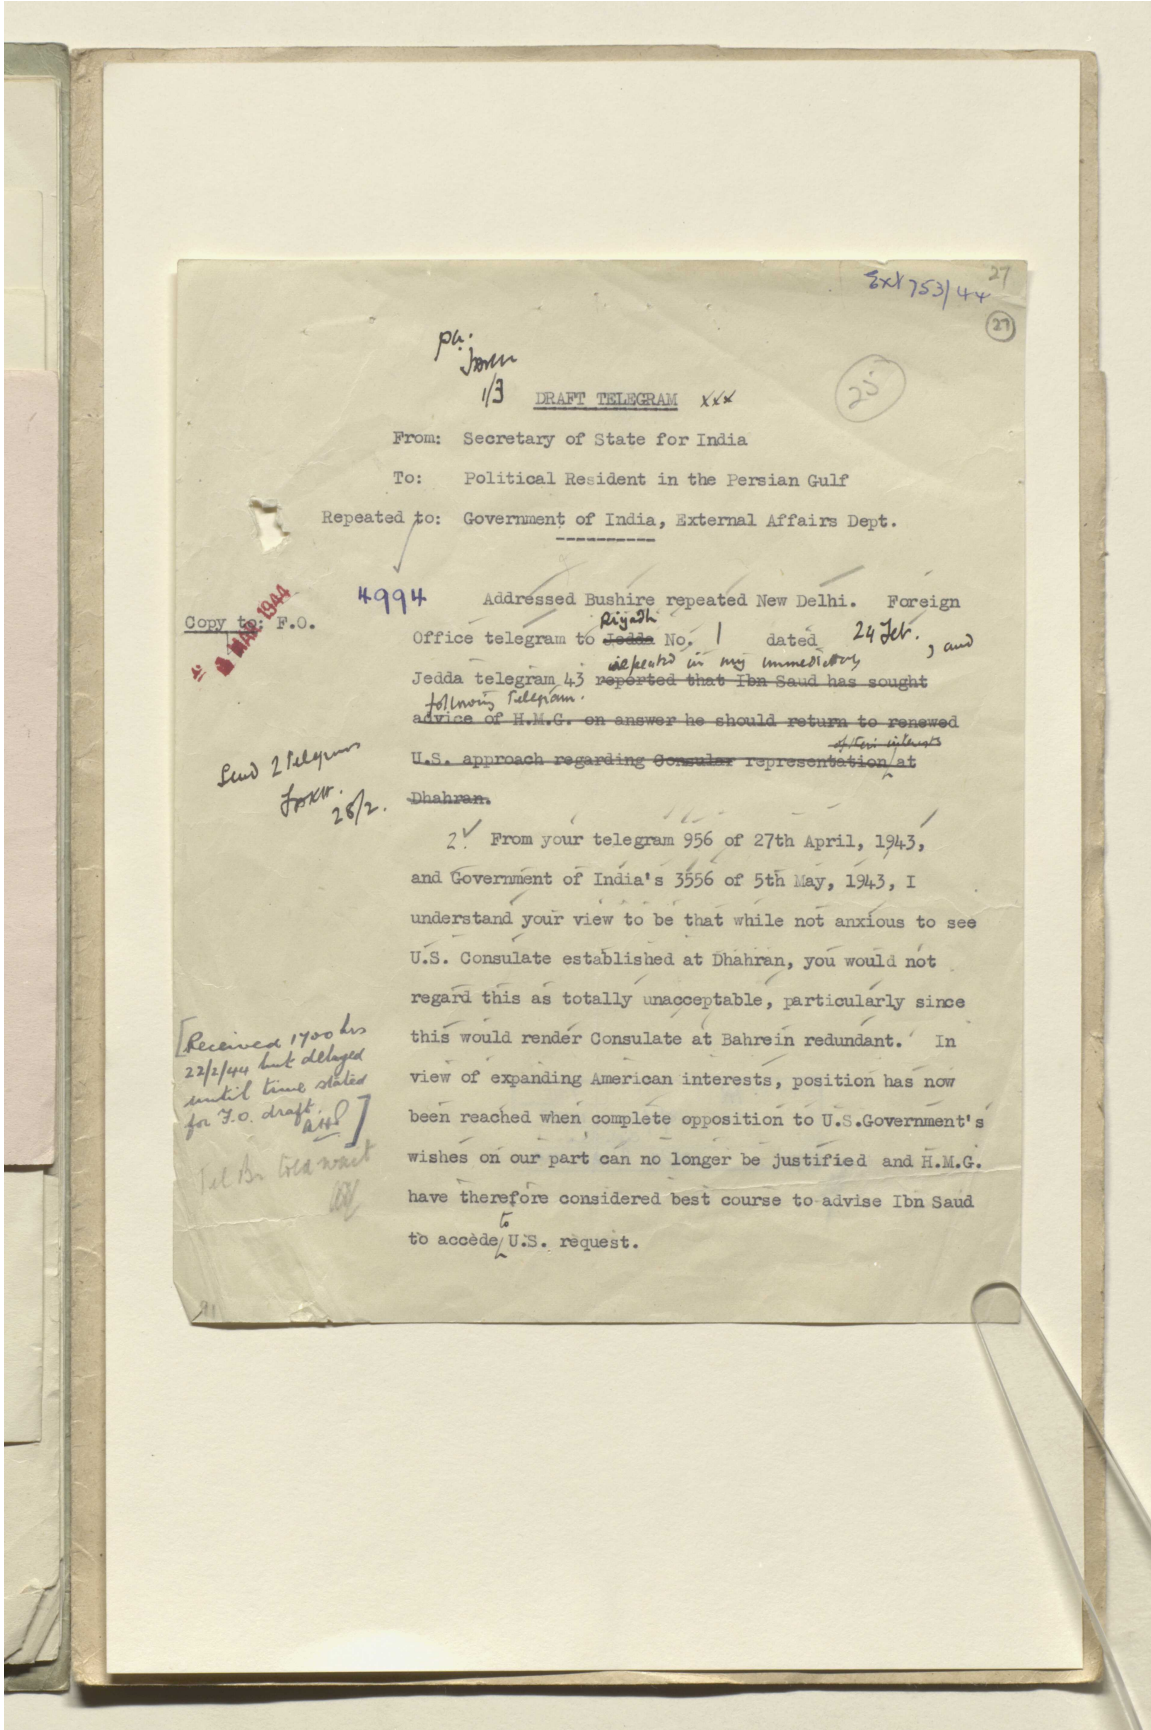 Ext 753/44
27
27
pa.
1/3
25
DRAFT TELEGRAM xxx
From: Secretary of State for India
To: Political Resident in the Persian Gulf
Repeated to: Government of India, External Affairs Dept.
----------
4994
Addressed Bushire repeated New Delhi. Foreign
Copy to: F.O.
MAR 1944
Riyadh
Office telegram to Jedda No. 1 dated 24 Feb. , and
repeated in my immediately
Jedda telegram 43 reported that Ibn Saud has sought
following Telegram.
advice of H.M.G. on answer he should return to renewed
interests
U.S. approach regarding Consular representation at
Dhahran.
Send 2 Telegrams
28/2.
2. From your telegram 956 of 27th April, 1943,
and Government of India's 3556 of 5th May, 1943, I
understand your view to be that while not anxious to see
U.S. Consulate established at Dhahran, you would not
regard this as totally unacceptable, particularly since
this would render Consulate at Bahrein redundant. In
view of expanding American interests, position has now
been reached when complete opposition to U.S.Government's
wishes on our part can no longer be justified and H.M.G.
have therefore considered best course to advise Ibn Saud
to
to accede U.S. request.
[Received 1700 hrs
22/2/44 but delayed
until time stated
for F.O. draft.
]
Tel Br told wait
91